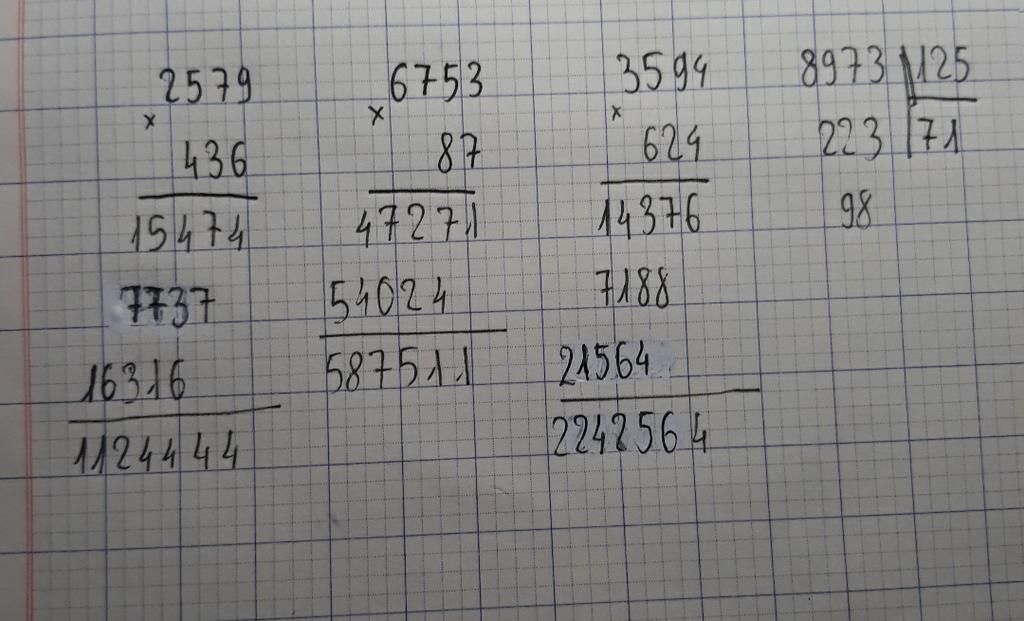 2579
×
436
15474
7737
16316
1124444
6753
×
87
47271
54024
587511
3594
×
624
14376
7188
21564
2242564
8973 125
223 71
98